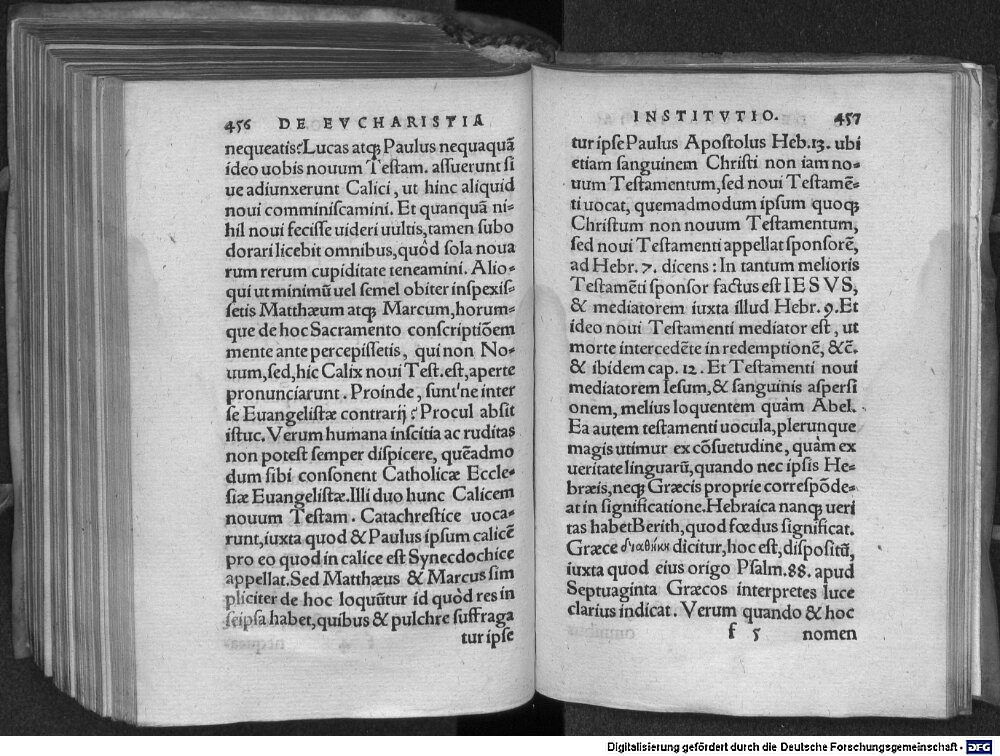 456 DE EVCHARISTIA
nequeatis? Lucas atq; Paulus nequaquã
ideo uobis nouum Testam. assuerunt si
ue adiunxerunt Calici, ut hinc aliquid
noui comminiscamini. Et quanquã ni=
hil noui fecisse uideri uultis, tamen subo
dorari licebit omnibus, quòd sola noua
rum rerum cupiditate teneamini. Alio=
qui ut minimũ uel semel obiter inspexis=
setis Matthæum atq; Marcum, horum=
que de hoc Sacramento conscriptiõem
mente ante percepissetis, qui non No=
uum, sed, hic Calix noui Test. est, aperte
pronunciarunt. Proinde, sunt'ne inter
se Euangelistæ contrarij? Procul absit
istuc. Verum humana inscitia ac ruditas
non potest semper dispicere, quẽadmo
dum sibi consonent Catholicæ Eccle=
siæ Euangelistæ. Illi duo hunc Calicem
nouum Testam. Catachrestice uoca=
runt, iuxta quod & Paulus ipsum calicẽ
pro eo quod in calice est Synecdochice
appellat. Sed Matthæus & Marcus sim
pliciter de hoc loquũtur id quòd res in
seipsa habet, quibus & pulchre suffraga
tur ipse
INSTITVTIO. 457
tur ipse Paulus Apostolus Heb. 13. ubi
etiam sanguinem Christi non iam no=
uum Testamentum, sed noui Testamẽ=
ti uocat, quemadmodum ipsum quoq;
Christum non nouum Testamentum,
sed noui Testamenti appellat sponsorẽ,
ad Hebr. 7. dicens: In tantum melioris
Testamẽti sponsor factus est IESVS,
& mediatorem iuxta illud Hebr. 9. Et
ideo noui Testamenti mediator est, ut
morte intercedẽte in redemptionẽ, &c̃.
& ibidem cap. 12. Et Testamenti noui
mediatorem Iesum, & sanguinis aspersi
onem, melius loquentem quàm Abel.
Ea autem testamenti uocula, plerunque
magis utimur ex cõsuetudine, quàm ex
ueritate linguarũ, quando nec ipsis He=
bræis, neq; Græcis proprie correspõde=
at in significatione. Hebraica nanq; ueri
tas habet Berith, quod fœdus significat.
Græce διαθήκη dicitur, hoc est, dispositũ,
iuxta quod eius origo Psalm. 88. apud
Septuaginta Græcos interpretes luce
clarius indicat. Verum quando & hoc
f 5 nomen
Digitalisierung gefördert durch die Deutsche Forschungsgemeinschaft - DFG